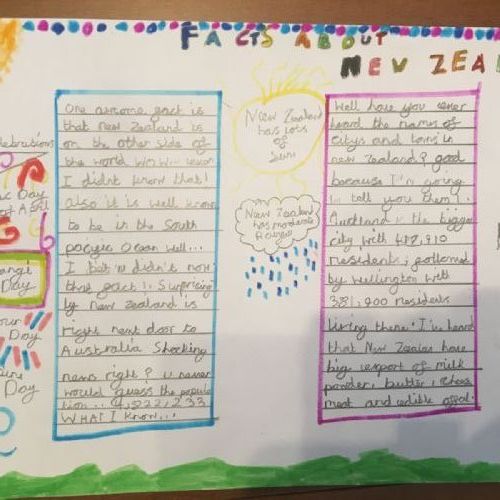 FACTS ABOUT
NEW ZEA
One awsome fact is
that new Zealand is
on the other side of
the world WOW! WOW! never
I didnt know that!
also it is well know
to be in the South
pacific Ocean well...
I bet u didn't now
that fact!. Surprising
ly new zealand is
right next door to
Australia Shocking
news right? u never
would guess the popula
tion...4,522,233
WHAT I KNOW...
New Zealand
has lots
of
Sun!
New Zealand
has moderate
Well have you ever
heard the names of
citys and towns in
new zealand? good
because I'm going
to tell you them!
Auckland is the bigges
city with
residents, followed
by wellington with
381,900 residents
living there! I've heard
that New Zealand have
big export of milk
powder, butter, cheese
meat and edible offal.
elebrations
Day
of April
angi
Day
our
Day
Day